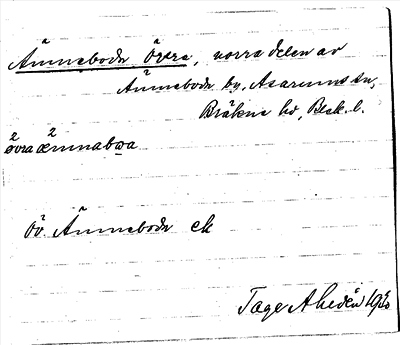 Ämneboda Övre, norra delen av
Ämneboda by, Asarums sn,
Bräkne hd, Blek. l.
2 2
øvra æmnabωa
Öv. Ämneboda ek
Tage Ahedån 1930